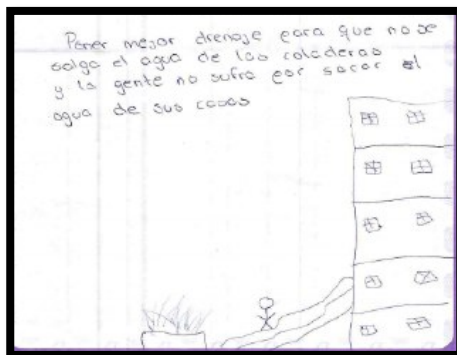 Poner mejor drenaje para que no se
salga el agua de las coladeras
y la gente no sufra por sacar el
agua de sus casas